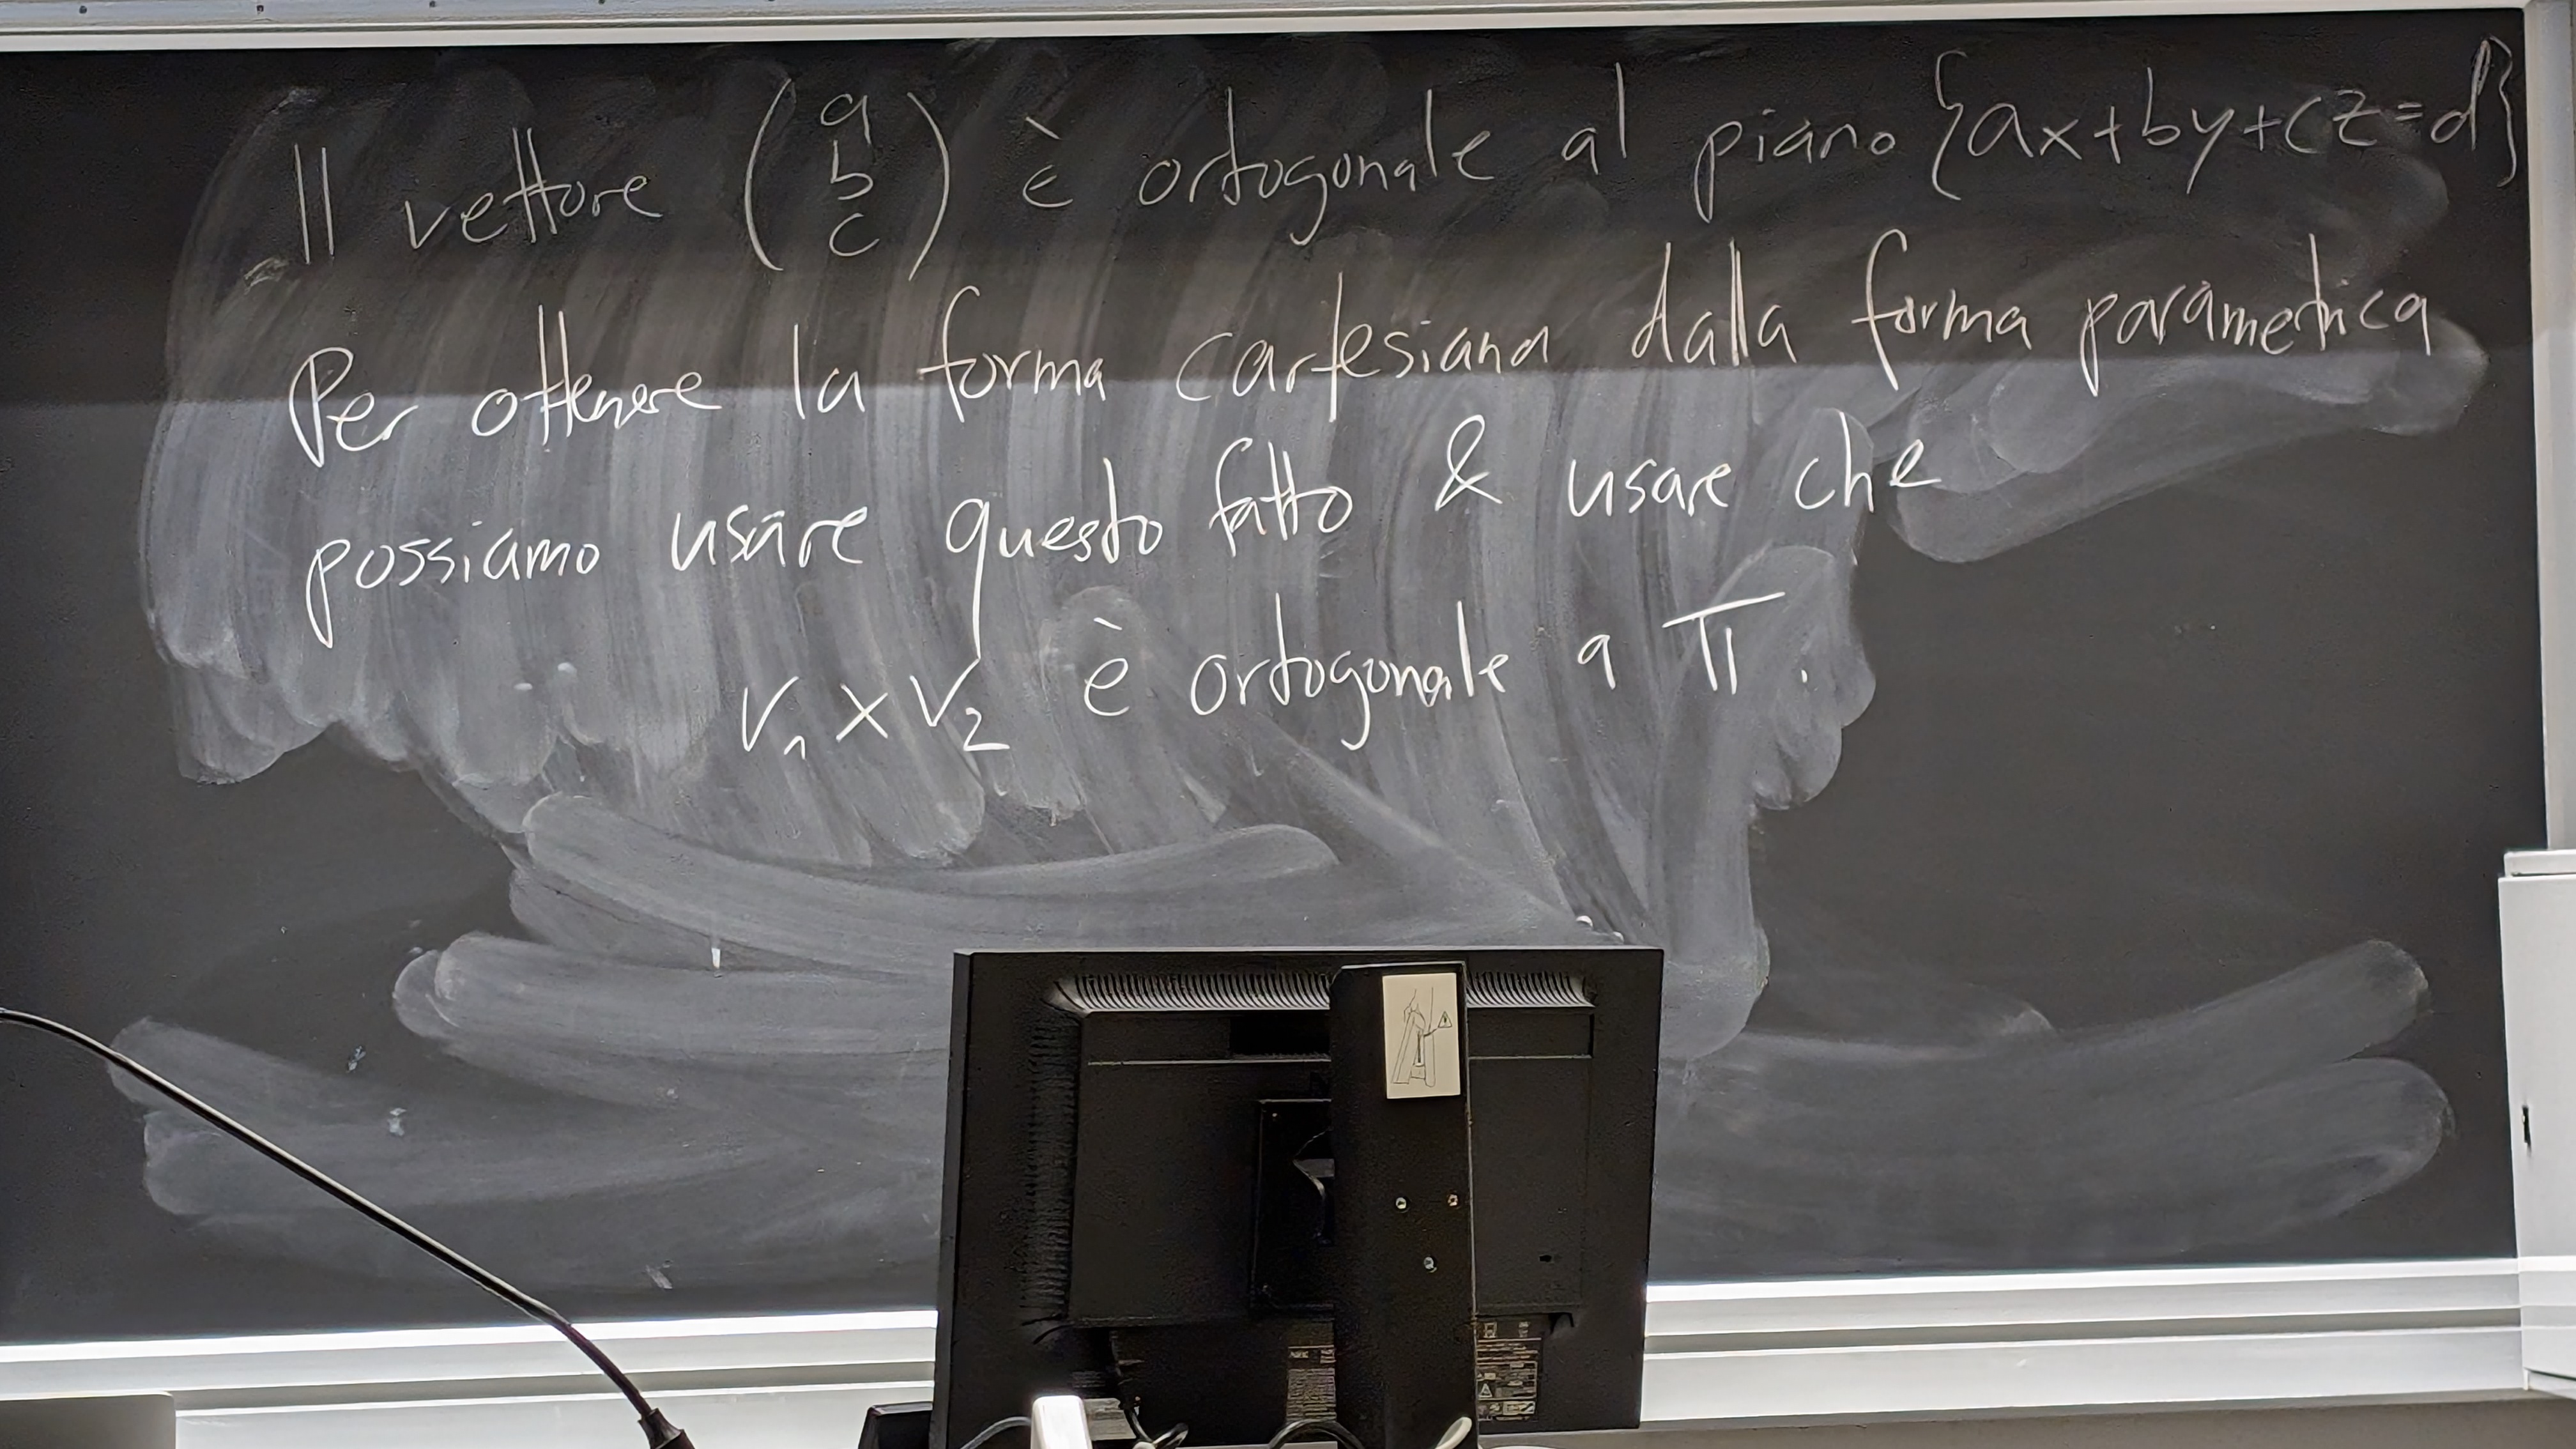 Il vettore (a b c) è ortogonale al piano {ax+by+cz=d}
Per ottenere la forma cartesiana dalla forma parametrica
possiamo usare questo fatto & usare che
v₁ × v₂ è ortogonale a π.
NEC